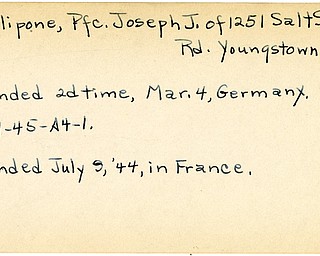 lipone, Pfc. Joseph J. of 1251 Salt S
Rd. Youngstown
nded 2d time, Mar. 4, Germany.
-45-A4-1.
nded July 9, '44, in France.